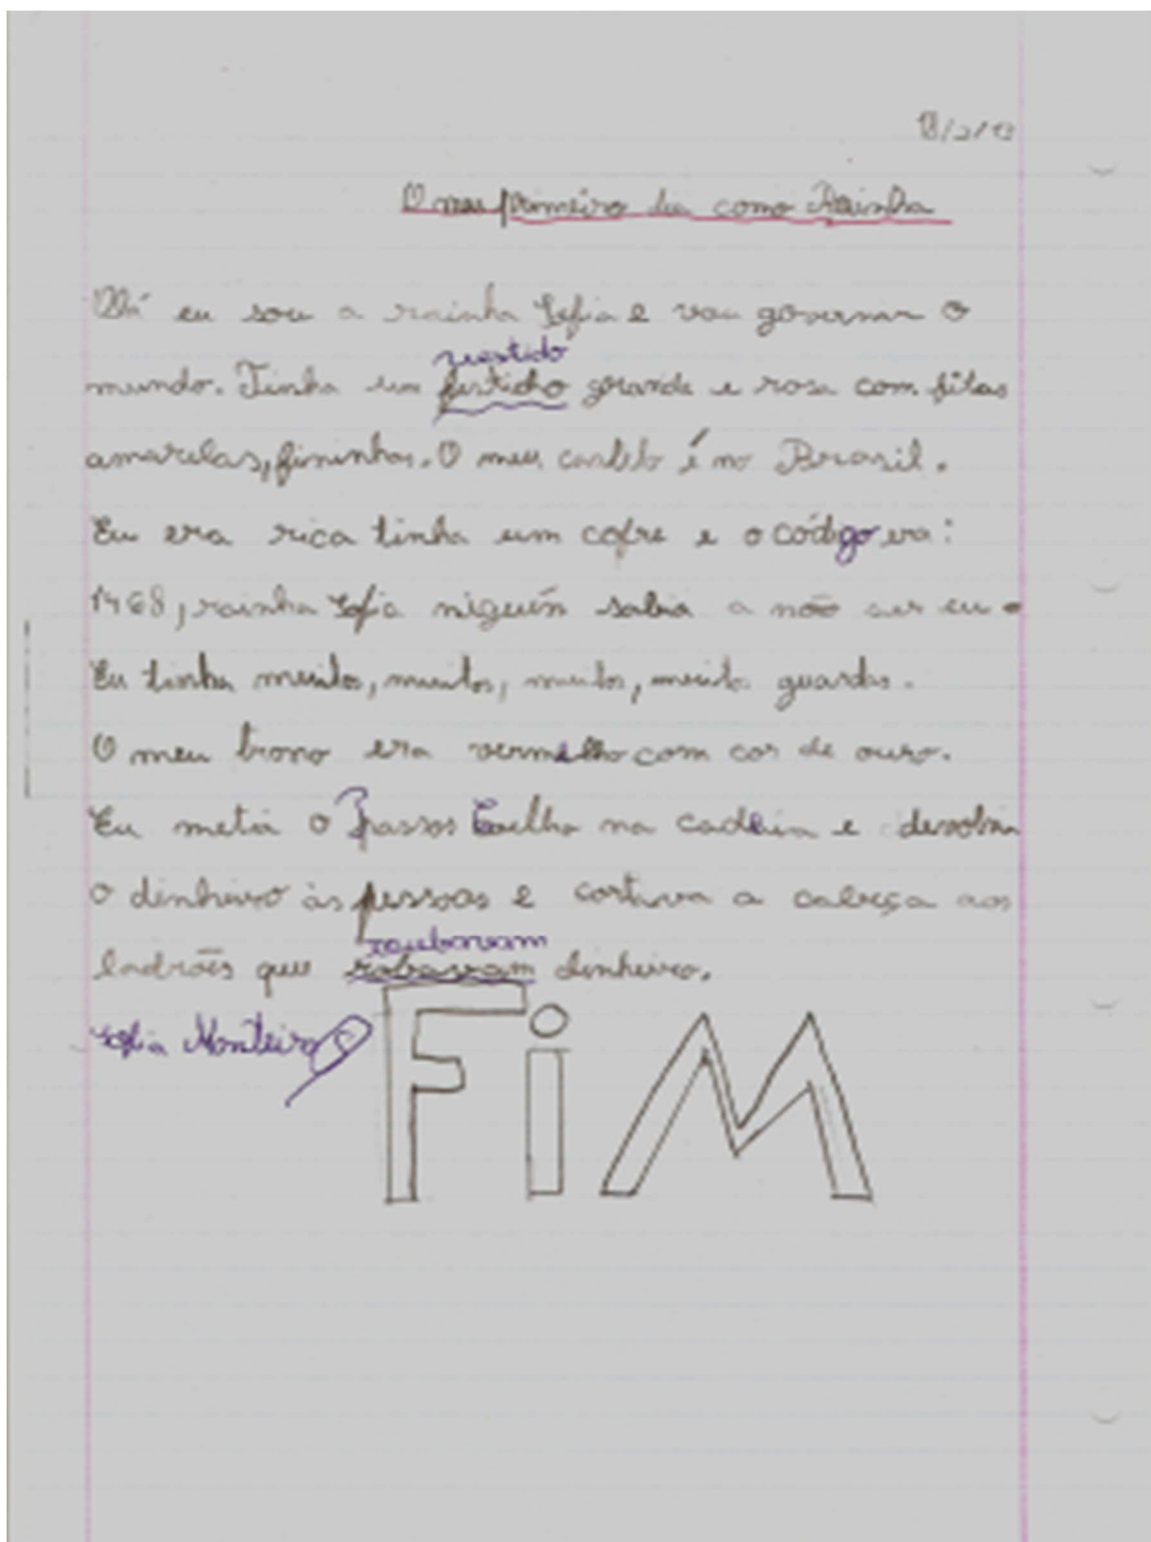 18/2/13
O meu primeiro dia como Rainha
Olá eu sou a rainha Sofia e vou governar o
vestido
mundo. Tinha um festido grande e rosa com fitas
amarelas, fininhas. O meu castelo é no Brasil.
Eu era rica tinha um cofre e o código era:
1468, rainha Sofia niguém sabia a não ser eu.
Eu tinha muitos, muitos, muitos, muitos guardas.
O meu trono era vermelho com cor de ouro.
Eu metia o Passos Coelho na cadeia e devolvia
o dinheiro às pessoas e cortava a cabeça aos
roubavam
ladrões que robavam dinheiro.
Sofia Monteiro
FiM